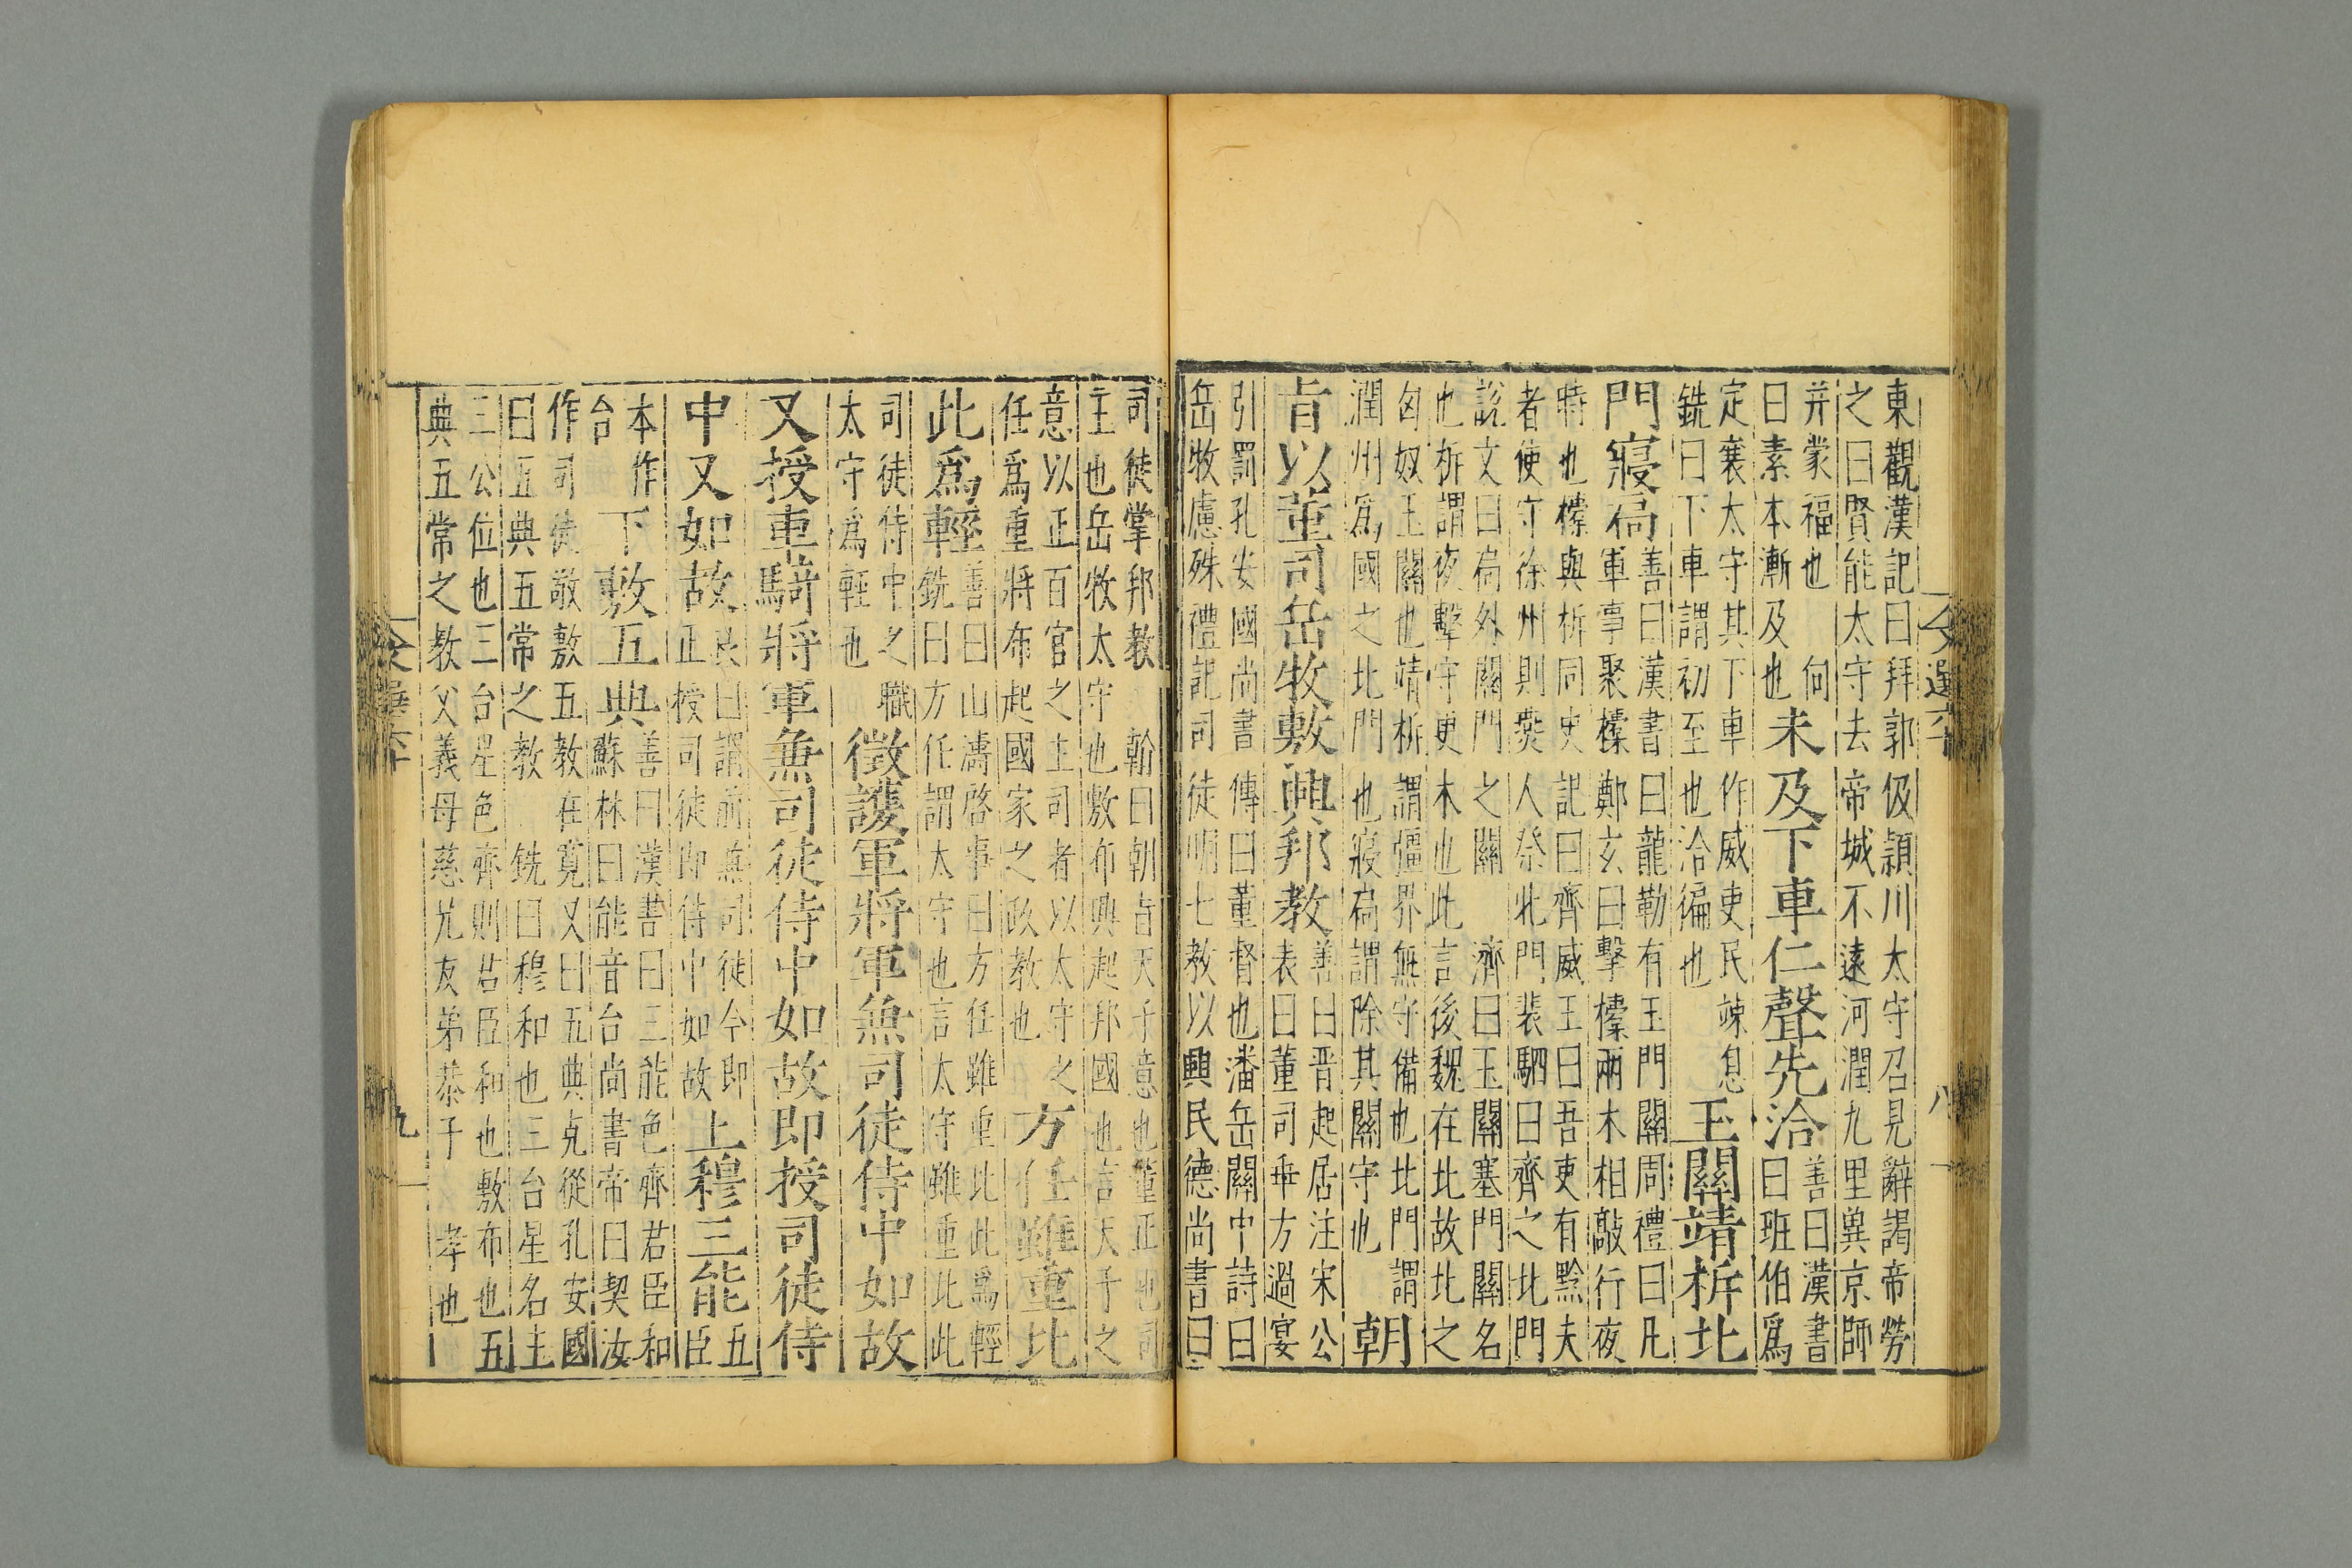 東觀漢記曰拜郭伋潁川太守召見辭謁帝勞
之曰賢能太守去帝城不遠河潤九里冀京師
并蒙福也 向
曰素本漸及也
未及下車仁聲先洽
善曰漢書
曰班伯爲
定襄太守其下車作威吏民竦息
銑曰下車謂初至也洽徧也
玉關靖柝北
門寢槁
善曰漢書曰龍勒有玉門關周禮曰凡
軍事聚㯓鄭玄曰擊㯓兩木相敲行夜
時也㯓與柝同史記曰齊威王曰吾吏有黔夫
者使守徐州則燕人祭北門裴駰曰齊之北門
說文曰扃外關門之關 濟曰玉關塞門關名
也柝謂夜擊守更木也此言後魏在北故北之
匈奴玉關也靖柝謂彊界無守備也北門謂
潤州爲國之北門也寢扃謂除其關守也
朝
旨以董司岳牧敷興邦教
善曰晋起居注宋公
表曰董司垂方過宴
引罰孔安國尚書傳曰董督也潘岳關中詩曰
岳牧慮殊禮記司徒明七教以興民德尚書曰
司徒掌邦教 翰曰朝旨天子意也董正也司
主也岳牧太守也敷布興起邦國也言天子之
意以正百官之主司者以太守之
任爲重將布起國家之政教也
方任雖重比
此爲輕
善曰山濤啓事曰方任雖重比此爲輕
銑曰方任謂太守也言太守雖重比此
司徒侍中之職
太守爲輕也
徵護軍將軍兼司徒侍中如故
又授車騎將軍兼司徒侍中如故即授司徒侍
中又如故
良曰謂前兼司徒今即
正授司徒即侍中如故
上穆三能
五
臣
本作
台
下敷五典
善曰漢書曰三能色齊君臣和
蘇林曰能音台尚書帝曰契汝
作司徒敬敷五教在寬又曰五典克從孔安國
曰五典五常之教 銑曰穆和也三台星名主
三公位也三台星色齊則君臣和也敷布也五
典五常之教父義母慈兄友弟恭子孝也